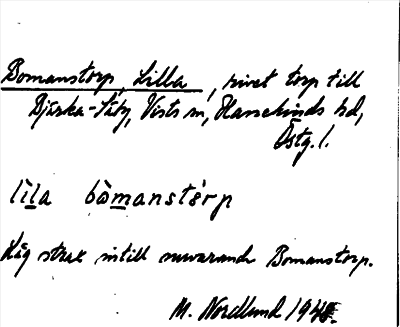 Bomanstorp, Lilla, rivet torp till
Bjärka-Säby, Vists sn, Hanekinds hd,
Östg. l.
lìl̲a bòm̲anstèrp
Låg strax intill nuvarande Bomanstorp.
M. Nordlund